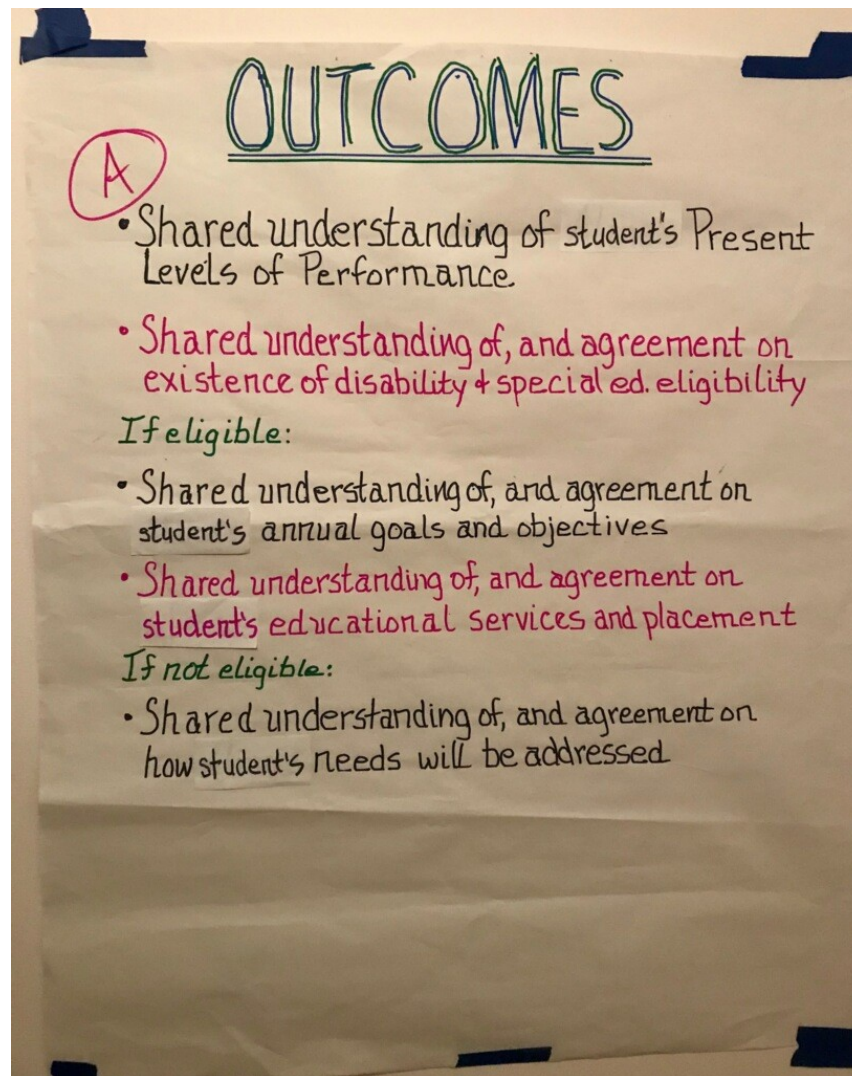 OUTCOMES
A
• Shared understanding of student's Present
Levels of Performance.
• Shared understanding of, and agreement on
existence of disability & special ed. eligibility
If eligible:
• Shared understanding of, and agreement on
student's annual goals and objectives
• Shared understanding of, and agreement on
student's educational services and placement
If not eligible:
• Shared understanding of, and agreement on
how student's needs will be addressed